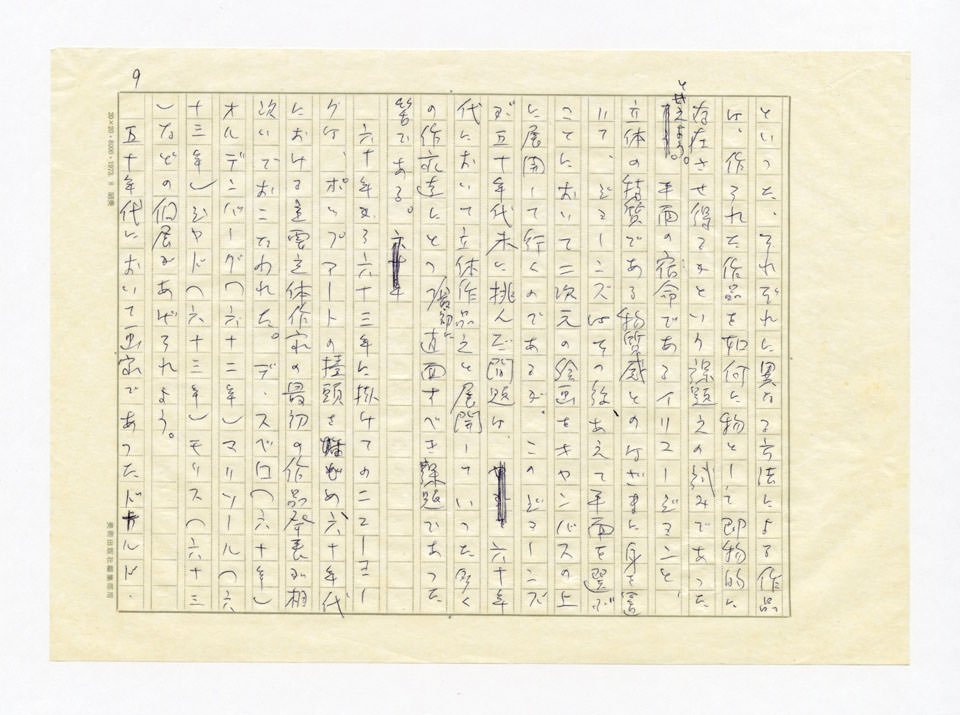 9
といった、それぞれに異なる方法による作品
は、作られた作品を如何に物として即物的に
存在させ得るかという課題えの試みであった
と云えよう。平面の宿命であるイリュージョンと、
立体の特質である物質感とのはざまに身を置
いて、ジョーンズはその後あえて平面を選び
ことにおいて二次元の絵画をキャンバスの上
に展開して行くのであるが、このジョーンズ
が五十年代末に挑んだ問題は、六十年
代において立体作品えと展開していった多く
の作家達にとって最初に直面すべき課題であった
筈である。
六十年から六十三年に掛けてのニューヨー
クは、ポップアートの擡頭を始め六十年代
における主要立体作家の最初の作品発表が相
次いでおこなわれた。ディスベロ(六十年)
オルデンバーグ(六十二年)マリソール(六
十三年)ジャド(六十三年)モリス(六十三
)などの個展があげられよう。
五十年代において画家であったドナルド・
20×20・8000・1973. 8
美術出版社編集部用